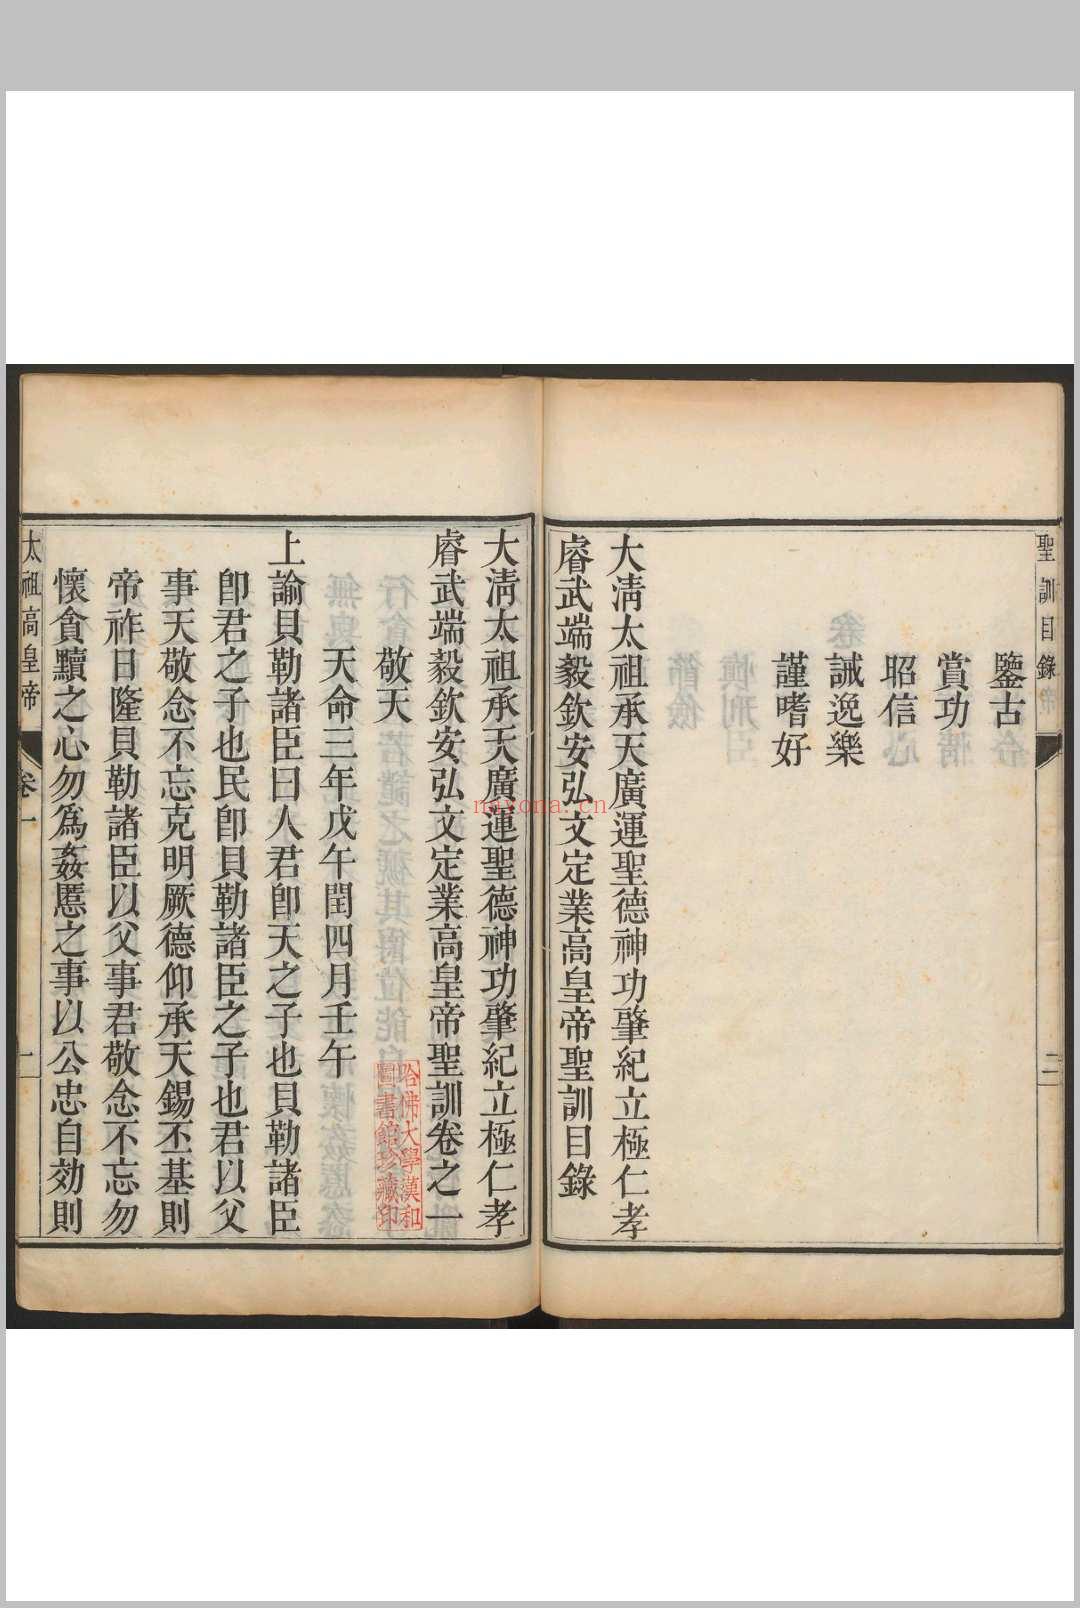 聖訓目錄
二
鑒古
賞功
昭信
誡逸樂
謹嗜好
大清太祖承天廣運聖德神功肇紀立極仁孝
睿武端毅欽安弘文定業高皇帝聖訓目錄
大清太祖承天廣運聖德神功肇紀立極仁孝
睿武端毅欽安弘文定業高皇帝聖訓卷之一
敬天
天命三年戊午閏四月壬午
上諭貝勒諸臣曰人君卽天之子也貝勒諸臣
卽君之子也民卽貝勒諸臣之子也君以父
事天敬念不忘克明厥德仰承天錫丕基則
帝祚日隆貝勒諸臣以父事君敬念不忘勿
懷貪黷之心勿爲姦慝之事以公忠自効則
太祖高皇帝
卷一
一
哈佛大學漢和
圖書館珍藏印
nayona.cn